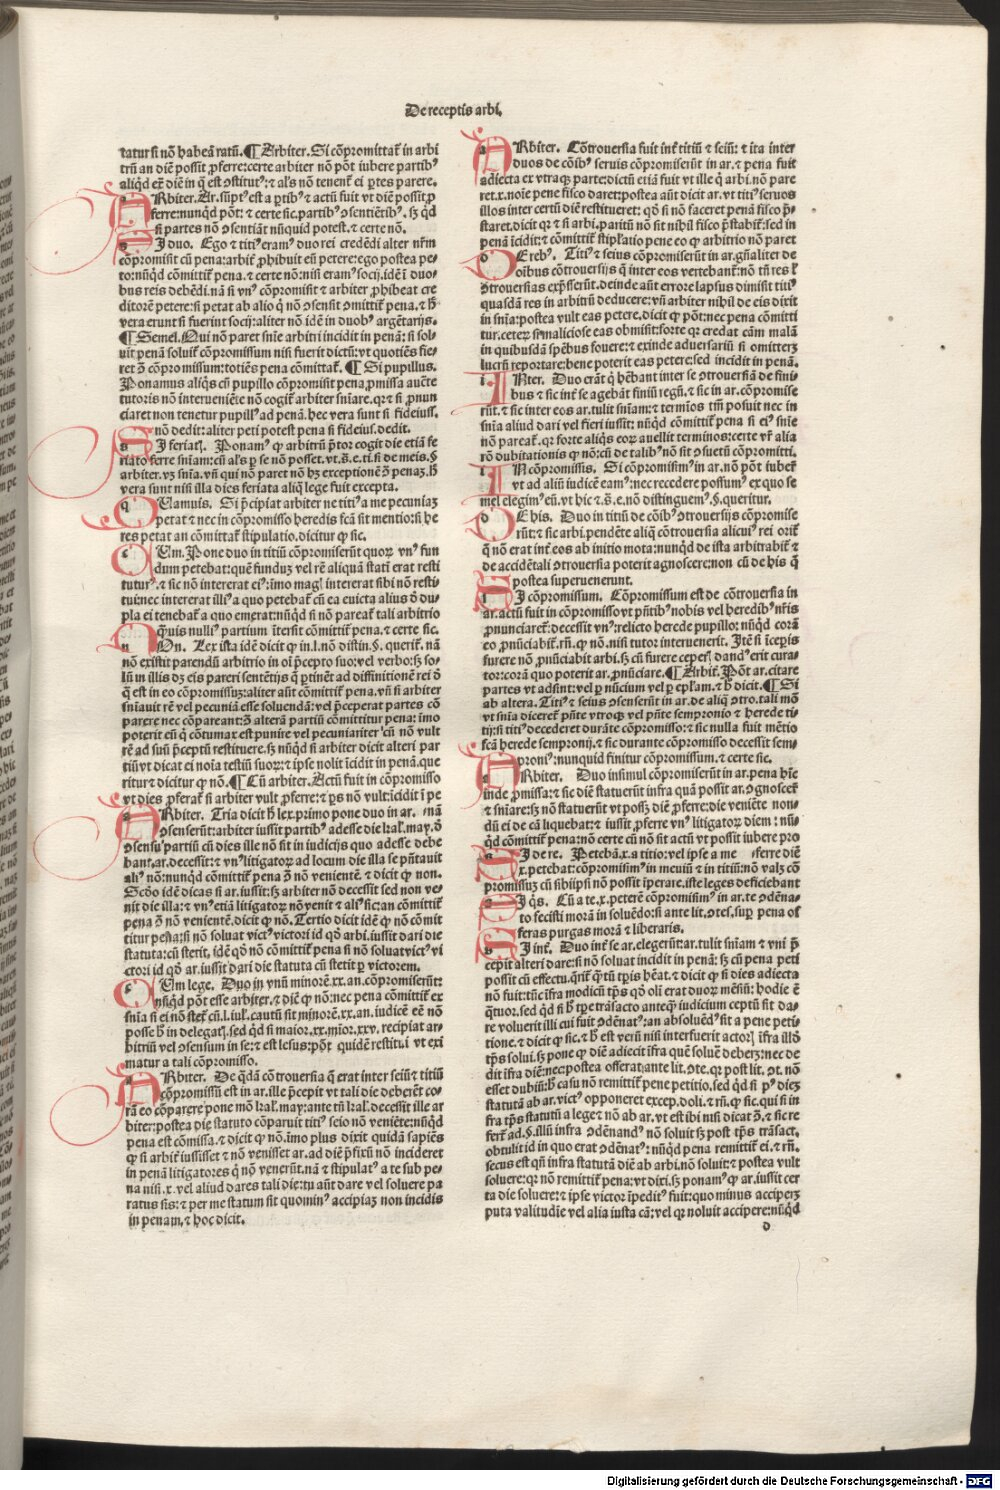 De receptis arbi.
tatur si nō habeā ratū. ¶ Arbiter. Si cōpromittat̄ in arbi
trū an diē possit ꝓferre: certe arbiter nō pōt iubere partibꝰ
aliqd̄ eē diē in q̄ est ꝯstitutꝰ: ⁊ als nō tenent̄ ei ꝑtes parere.
ARbiter. Ar. sūptꝰ est a ꝑtibꝰ ⁊ actū fuit vt diē possit ꝓ
ferre: nunqd̄ pōt: ⁊ certe sic. partibꝰ ꝯsentiētibꝰ. sꝫ qd̄
si partes nō ꝯsentiāt nūquid potest. ⁊ certe nō.
SI duo. Ego ⁊ titiꝰ eramꝰ duo rei credēdi alter nr̄m
cōpromisit cū pena: arbit̄ ꝓhibuit eū petere: ego postea pe
to: nūqd̄ cōmittit̄ pena. ⁊ certe nō: nisi eramꝰ socij. idē ī duo
bus reis debēdi. nā si vnꝰ cōpromisit ⁊ arbiter ꝓhibeat cre
ditorē petere: si petat ab alio q̄ nō ꝯsensit ꝯmittit̄ pena. ⁊ h̄
vera erunt si fuerint socij: aliter nō idē in duobꝰ argētarijs.
¶ Semel. Qui nō paret sn̄ie arbitri incidit in penā: si sol
uit penā soluit̄ cōpromissum nisi fuerit dictū: vt quotiēs fie
ret ꝯ̄ cōpromissum: totiēs pena cōmittat̄. ¶ Si pupillus.
Ponamus aliq̄s cū pupillo cōpromisit pena. ꝓmissa auc̄te
tutoris nō interueniēte nō cogit̄ arbiter sn̄iare. qꝛ ⁊ si ꝓnun
ciaret non tenetur pupillꝰ ad penā. hec vera sunt si fideiuss.
nō dedit: aliter peti potest pena si fideius. dedit.
SI feriatꝭ. Ponamꝰ ꝙ arbitrū p̄tor cogit die etiā fe
riato ferre sn̄iam: cū als ꝑ se nō posset. vt. s̄. e. ti. si de meis. §
arbiter. vꝫ sn̄ia. vn̄ qui nō paret nō hꝫ exceptionē ꝯ̄ penaꝫ. h̄
vera sunt nisi illa dies feriata aliq̄ lege fuit excepta.
QUamuis. Si p̄cipiat arbiter ne titiꝰ a me pecuniaꝫ
petat ⁊ nec in cōpromisso heredis fcā sit mentio: si he
res petat an cōmittat̄ stipulatio. dicitur ꝙ sic.
CUm. Pone duo in titiū cōpromiserūt quoꝝ vnꝰ fun
dum petebat: quē funduꝫ vel rē aliquā statī erat resti
tuturꝰ. ⁊ sic nō intererat eiꝰ: īmo magꝭ intererat sibi nō resti
tui: nec intererat illiꝰ a quo petebat̄ cū ea euicta alius ꝺ̄ du
pla ei tenebat̄ a quo emerat: nūqd̄ si nō pareat̄ tali arbitrio
q̄uis nulliꝰ partium ītersit cōmittit̄ pena. ⁊ certe sic.
NOn. Lex ista idē dicit ꝙ in. l. nō distin. §. querit̄. nā
nō existit parendū arbitrio in oī p̄cepto suo: vel verbo: sꝫ so
lū in illis dꝫ eis pareri sententijs q̄ ꝑtinēt ad diffinitionē rei ꝺ̄
q̄ est in eo cōpromissuꝫ: aliter aūt cōmittit̄ pena. vn̄ si arbiter
sn̄iauit rē vel pecuniā esse soluendā: vel p̄ceperat partes cō
parere nec cōpareant: ꝯ̄ alterā partiū cōmittitur pena: īmo
poterit eū q̄ cōtumax est punire vel pecuniariter ꝰcū nō vult
rē ad suū p̄ceptū restituere. sꝫ nūqd̄ si arbiter dicit alteri par
tiū vt dicat ei noīa testiū suoꝝ: ⁊ ipse nolit īcidit in penā. que
ritur ⁊ dicitur ꝙ nō. ¶ Cū arbiter. Actū fuit in cōpromisso
vt dies ꝓferat̄ si arbiter vult ꝓferre: ⁊ ꝑs nō vult: īcidit ī pe
ARbiter. Tria dicit h̄ lex. primo pone duo in ar. nā
ꝯsenserūt: arbiter iussit partibꝰ adesse die kal. may. ꝺ̄
ꝯsensu partiū cū dies ille nō sit in iudicijs quo adesse debe
bant. ar. decessit: ⁊ vnꝰ litigatoꝝ ad locum die illa se p̄ntauit
aliꝰ nō: nunqd̄ cōmittit̄ pena ꝯ̄ nō venientē. ⁊ dicit ꝙ non.
Scd̄o idē dicas si ar. iussit: sꝫ arbiter nō decessit sed non ve
nit die illa: ⁊ vnꝰ etiā litigatoꝝ nō venit ⁊ aliꝰ sic: an cōmittit̄
pena ꝯ̄ nō venientē. dicit ꝙ nō. Tertio dicit idē ꝙ nō cōmit
titur pena: si nō soluat victꝰ victori id qd̄ arbi. iussit dari die
statuta: cū stetit. idē qd̄ nō cōmittit̄ pena si nō soluat victꝰ vi
ctori id qd̄ ar. iussit dari die statuta cū stetit ꝑ victorem.
CUm lege. Duo in vnū minorē. xx. an. cōpromiserūt:
nūqd̄ pōt esse arbiter. ⁊ diē ꝙ nō: nec pena cōmittit̄ ex
sn̄ia si ei nō stet̄ cū. l. iul. cautū sit minorē. xx. an. iudicē eē nō
posse h̄ in delegatꝭ. sed qd̄ si maior. xx. mīor. xxv. recipiat ar
bitriū vel ꝯsensum in se: ⁊ est lesus: pōt quidē restitui vt exi
matur a tali cōpromisso.
ARbiter. De q̄dā cōtrouersia q̄ erat inter seiū ⁊ titiū
cōpromissū est in ar. ille p̄cepit vt tali die deberēt co
rā eo cōparere pone mō kal. may: ante tn̄ kal. decessit ille ar
biter: postea die statuto cōparuit titiꝰ seio nō veniēte: nūqd̄
pena est cōmissa. ⁊ dicit ꝙ nō. īmo plus dixit quidā sapiēs
ꝙ si arbit̄ iussisset ⁊ nō venisset ar. ad diē p̄fixū nō incideret
in penā litigatores q̄ nō venerūt. nā ⁊ stipulatꝰ a te sub pe
na nisi. x. vel aliud dares tali die: tu aūt dare vel soluere pa
ratus sis: ⁊ per me statum sit quominꝰ accipiaꝫ non incidis
in penam. ⁊ hoc dicit.
ARbiter. Cōtrouersia fuit int̄ titiū ⁊ seiū: ⁊ ita inter
duos de cōibꝰ seruis cōpromiserūt in ar. ⁊ pena fuit
adiecta ex vtraqꝫ parte: dictū etiā fuit vt ille q̄ arbi. nō pare
ret. x. noīe pene fisco daret: postea aūt dicit ar. vt titiꝰ seruos
illos inter certū diē restitueret: qd̄ si nō faceret penā fisco p̄
staret. dicit qꝛ ⁊ si arbi. paritū nō sit nihil fisco p̄stabit̄: sed in
penā īcidit: ⁊ cōmittit̄ stiplatio pene eo ꝙ arbitrio nō paret
DE rebꝰ. Titiꝰ ⁊ seius cōpromiserūt in ar. gn̄aliter de
oībus cōtrouersijs q̄ inter eos vertebant̄: nō tn̄ res l̄
ꝯtrouersias exp̄sserūt. deinde aūt errore lapsus dimisit titiꝰ
quasdā res in arbitrū deducere: vn̄ arbiter nihil de eis dixit
in sn̄ia: postea vult eas petere. dicit ꝙ pōt: nec pena cōmitti
tur. ceteꝝ si maliciose eas obmisit: forte qꝛ credat cām malā
in quibusdā spēbus fouere: ⁊ exinde aduersariū si omitterꝫ
lucrū reportare: bene poterit eas petere: sed incidit in penā.
INter. Duo erāt q̄ hēbant inter se ꝯtrouersiā de fini
bus ⁊ sic int̄ se agebāt finiū regū. ⁊ sic in ar. cōpromise
rūt. ⁊ sic inter eos ar. tulit sn̄iam: ⁊ termīos tm̄ posuit nec in
sn̄ia aliud dari vel fieri iussit: nūqd̄ cōmittit̄ pena si eiꝰ sn̄ie
nō pareat̄. qꝛ forte aliq̄s eoꝝ auellit terminos: certe vr̄ alia
rō dubitationis ꝙ nō: cū de talibꝰ nō sit ꝯsuetū cōpromitti.
IN cōpromissis. Si cōpromisimꝰ in ar. nō pōt iubet̄
vt ad aliū iudicē eamꝰ: nec recedere possumꝰ ex quo se
mel elegimꝰ eū. vt hic ⁊. s̄. e. nō distinguemꝰ. §. queritur.
DE his. Duo in titiū de cōibꝰ ꝯtrouersijs cōpromise
rūt: ⁊ sic arbi. pendēte aliq̄ cōtrouersia alicuiꝰ rei orit̄
q̄ nō erat int̄ eos ab initio mota: nunqd̄ de ista arbitrabit̄ ⁊
de accidētali ꝯtrouersia poterit agnoscere: non cū de his q̄
postea superuenerunt.
SI cōpromissum. Cōpromissum est de cōtrouersia in
ar. actū fuit in cōpromisso vt p̄ntibꝰ nobis vel heredibꝰ nr̄is
ꝓnunciaret̄: decessit vnꝰ: relicto herede pupillo: nūqd̄ corā
eo ꝓnūciabit̄. rn̄. ꝙ nō. nisi tutor interuenerit. Itē si īceꝑis
furere nō ꝓnūciabit arbi. sꝫ cū furere ceperꝭ dandꝰ erit cura
tor: corā quo poterit ar. ꝓnūciare. ¶ Arbit̄. Pōt ar. citare
partes vt adsint: vel ꝑ nūcium vel ꝑ epl̄am. ⁊ h̄ dicit. ¶ Si
ab altera. Titiꝰ ⁊ seius ꝯsenserūt in ar. de aliq̄ ꝯtro. tali mō
vt sn̄ia diceret̄ p̄nte vtroqꝫ vel p̄nte sempronio ⁊ herede ti
tij: si titiꝰ decederet durāte cōpromisso: ⁊ sic nulla fuit mētio
fcā herede sempronij. ⁊ sic durante cōpromisso decessit sem
proniꝰ: nunquid finitur cōpromissum. ⁊ certe sic.
ARbiter. Duo insimul cōpromiserūt in ar. pena hīc
inde ꝓmissa: ⁊ sic diē statuerūt infra quā possit ar. ꝯgnoscet̄
⁊ sn̄iare: sꝫ nō statuerūt vt possꝫ diē ꝓferre: die veniēte non
dū ei de cā liquebat: ⁊ iussit ꝓferre vnꝰ litigatoꝝ diem: nū
qd̄ cōmittit̄ pena: nō certe cū nō sit actū vt possit iubere pro
SI de re. Petebā. x. a titio: vel ipse a me ferre diē
x. petebat: cōpromisimꝰ in meuiū ⁊ in titiū: nō valꝫ cō
promissuꝫ cū sibiipsi nō possit īperare. iste leges deficiebant
SI q̄s. Cū a te. x. peterē cōpromisimꝰ in ar. te ꝯdēna
to fecisti morā in soluēdo: si ante lit. ꝯtes. suꝑ pena of
feras purgas morā ⁊ liberaris.
SI int̄. Duo int̄ se ar. elegerūt: ar. tulit sn̄iam ⁊ vni p̄
cepit alteri dare: si nō soluat incidit in penā: sꝫ cū pena peti
possit cū effectu. q̄rit̄ q̄ tū tꝑis hēat. ⁊ dicit ꝙ si dies adiecti
nō fuit: tūc īfra modicū tꝑs qd̄ olī erat duoꝝ mēsiū: hodie ē
q̄tuor. sed qd̄ si h̄ tꝑe trāsacto anteqꝫ iudicium ceptū sit da
re voluerit illi cui fuit ꝯdēnatꝰ: an absoluēdꝰ sit a pene peti
tione. ⁊ dicit ꝙ sic. ⁊ h̄ est verū nisi interfuerit actorꝭ īfra illō
tꝑs solui. sꝫ pone ꝙ diē adiecit īfra quē soluē deberꝫ: nec de
dit īfra diē: nec postea offerat: ante lit. ꝯte. qꝛ post lit. ꝯt. nō
esset dubiū: h̄ casu nō remittit̄ pene petitio. sed qd̄ si pꝰ dieꝫ
statutā ab ar. victꝰ opponeret excep. doli. ⁊ rn̄. ꝙ sic. qui si in
fra tꝑs statutū a lege ⁊ nō ab ar. vt est ibi nisi dicat ꝯ̄. ⁊ sic re
fert̄ ad. §. illū infra ꝯdēnandꝰ nō soluit sꝫ post tꝑs trāsact.
obtulit id in quo erat ꝯdēnatꝰ: nūqd̄ pena remittit̄ ei. ⁊ rn̄.
secus est qn̄ infra statutā diē ab arbi. nō soluit: ⁊ postea vult
soluere: qꝛ nō remittit̄ pena: vt dixi. sꝫ ponamꝰ ꝙ ar. iussit cer
ta die soluere: ⁊ ipse victor īpeditꝰ fuit: quo minus acciperꝫ
puta valitudīe vel alia iusta cā: vel qꝛ noluit accipere: nūqd̄
d
Digitalisierung gefördert durch die Deutsche Forschungsgemeinschaft - DFG